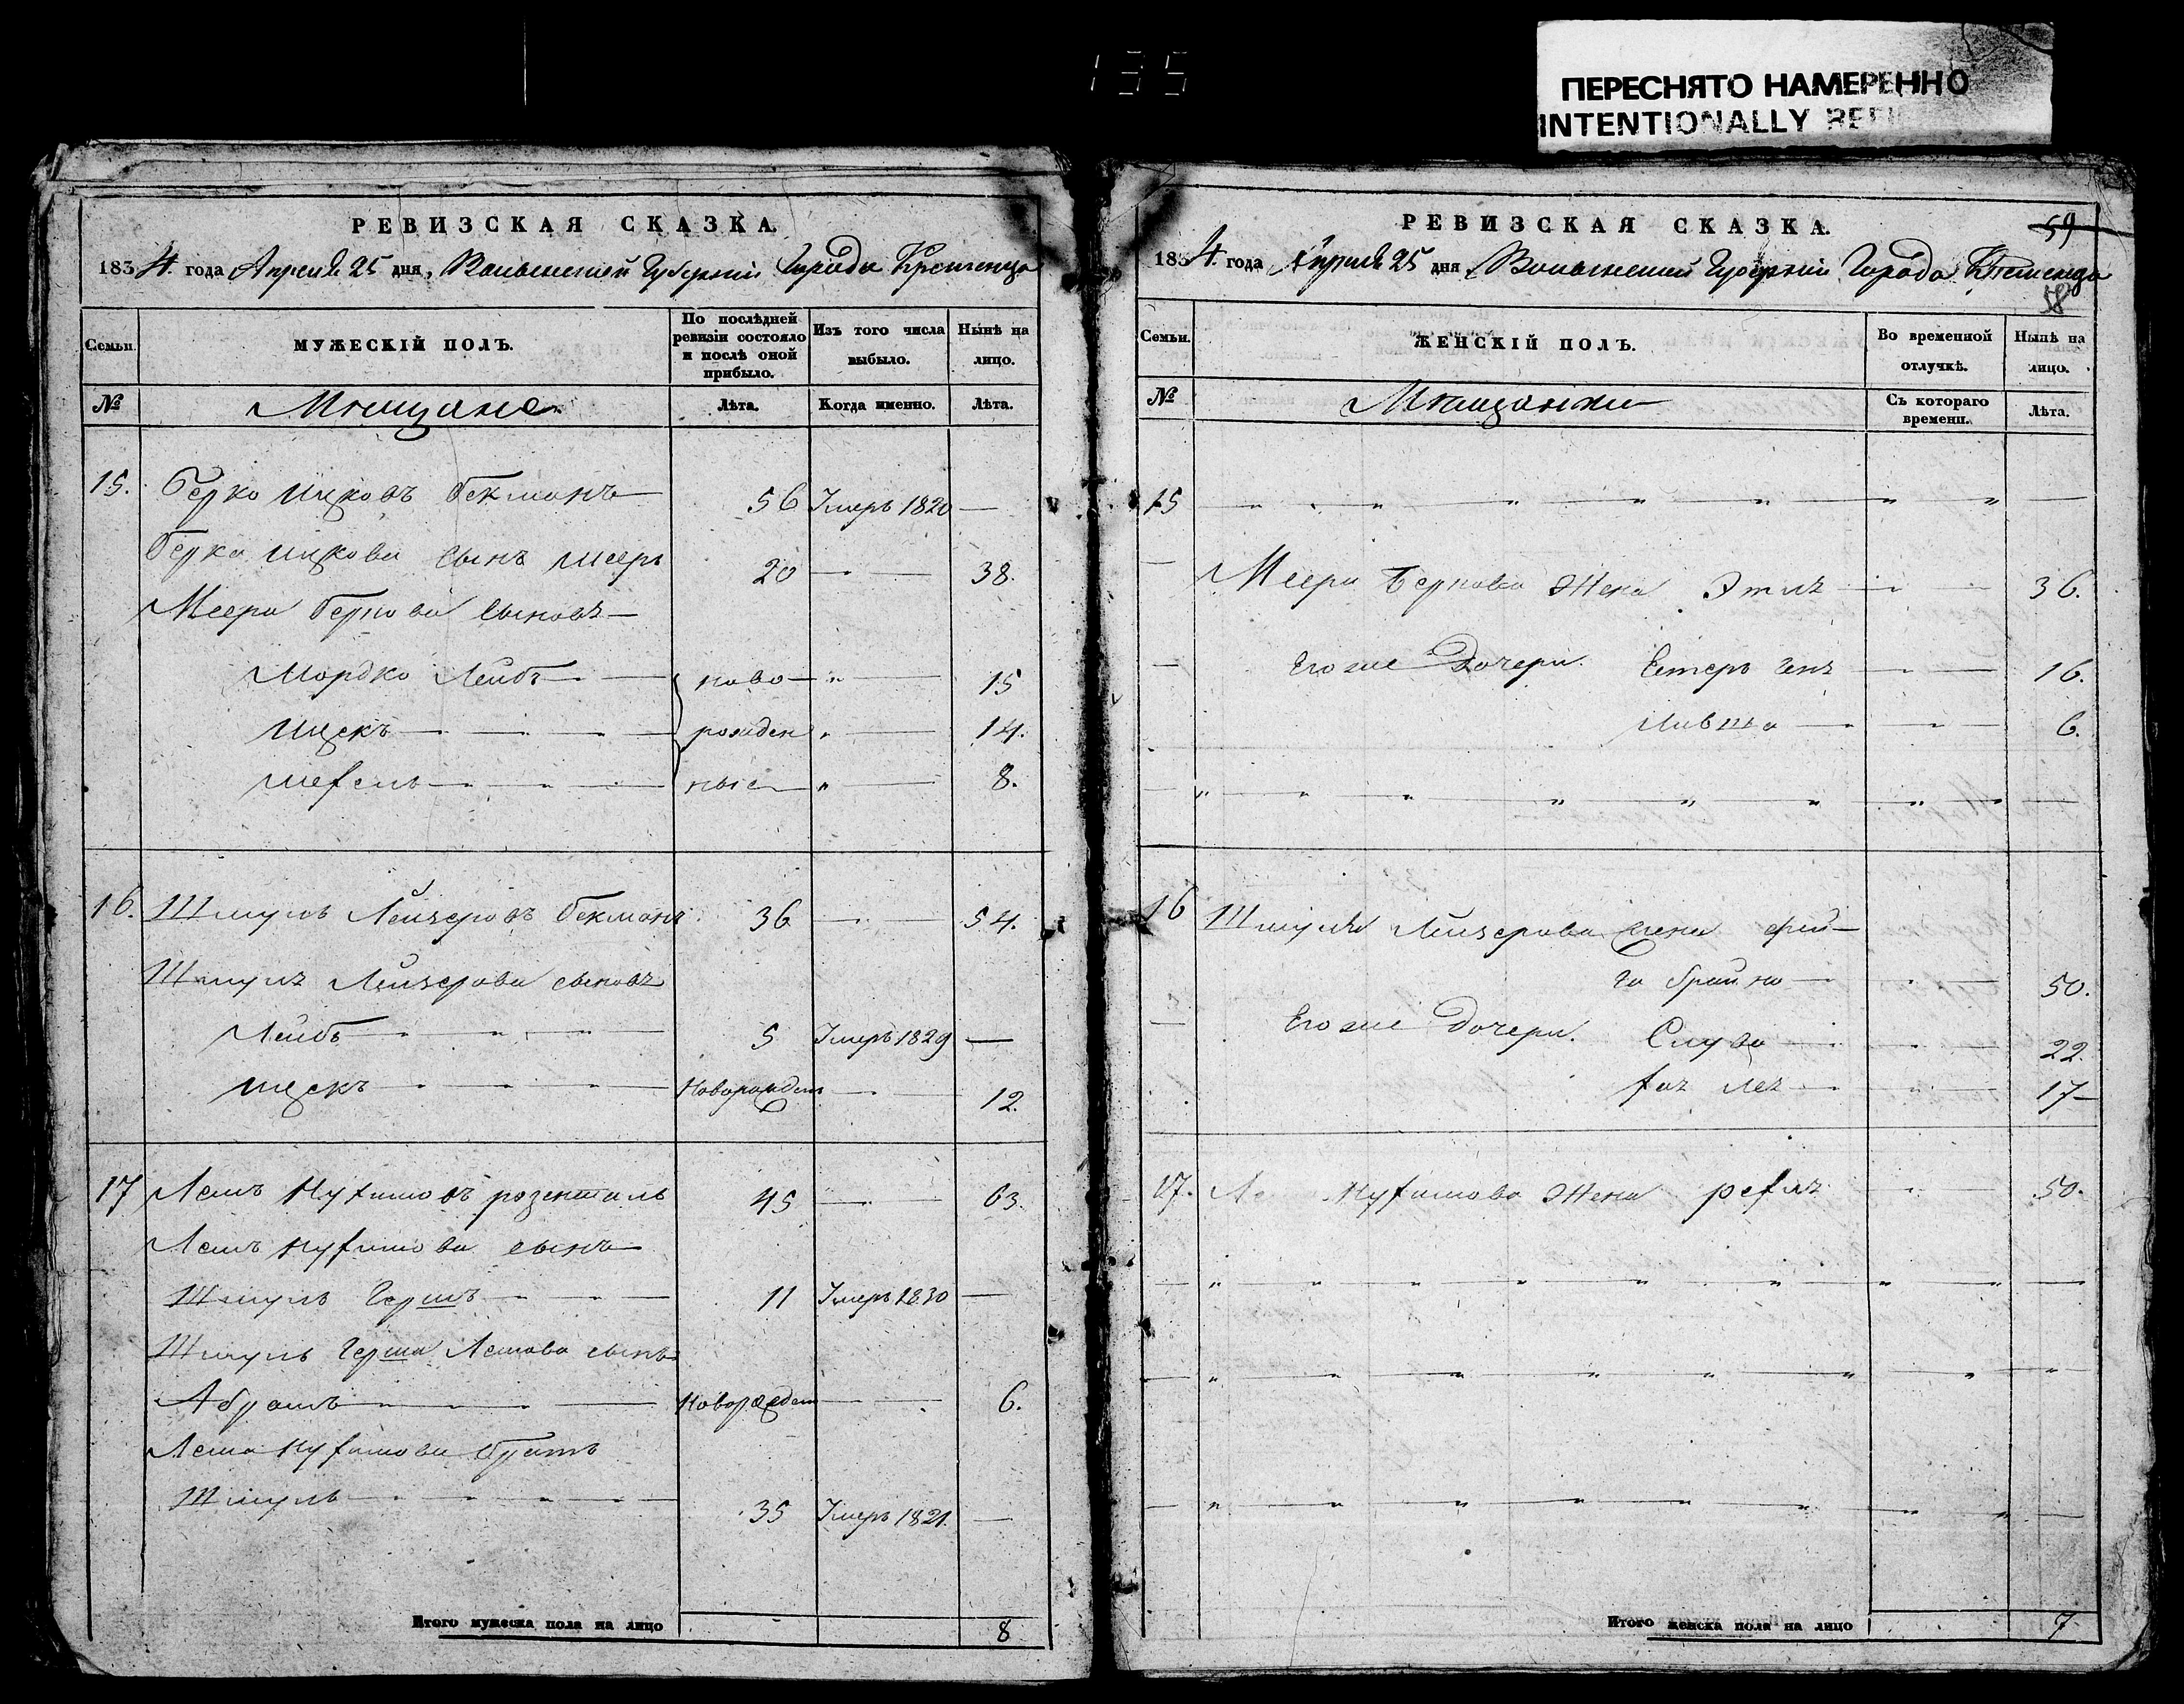 135
ПЕРЕСНЯТО НАМЕРЕННО
INTENTIONALLY
РЕВИЗСКАЯ СКАЗКА.
1834. года Апреля 25 дня, Волынской Губернiи Города Кременца
Семьи
МУЖЕСКIЙ ПОЛЪ.
По послѣдней ревизiи состояло и послѣ оной прибыло.
Изъ того числа выбыло.
Нынѣ на лицо.
№
Мѣщане
Лѣта.
Когда именно.
Лѣта.
15. Берко Ицковъ Бекманъ 56 Умеръ 1820 —
Берка Ицкова сынъ Мееръ 20 — 38.
Меера Беркова сыновъ
Мордко Лейбъ ново 15
Ицекъ рожден 14.
ные 8.
16. Шмуль Лейзеровъ Бекманъ 36 — 54.
Шмуля Лейзерова сыновъ
Лейбъ 5 Умеръ 1829 —
Ицекъ Новорожден 12.
17 Лемъ Нухимовъ Розенталь 45 — 63.
Лемъ Нухимова сынъ
Шмуль Гершъ 11 Умеръ 1830 —
Шмуль Герша Лемова сынъ
Абрамъ Новорожден 6.
Лема Нухимова братъ
Шмуль 35 Умеръ 1821. —
Итого мужеска пола на лицо 8
РЕВИЗСКАЯ СКАЗКА.
59
1834. года Апреля 25 дня Волынской Губернiи Города Кременца
58
Семьи.
ЖЕНСКIЙ ПОЛЪ.
Во временной отлучкѣ.
Нынѣ на лицо.
№
Мѣщанки
Съ котораго времени.
Лѣта.
15
Меера Беркова Жена Этля 36.
Его же Дочери. Естеръ 16.
Лившa 6.
16 Шмуля Лейзерова жена Фей-
га Брайна 50.
Его же Дочери. Слува 22.
17
17. Нухимова Жена Рехля 50.
Итого женска пола на лицо 7